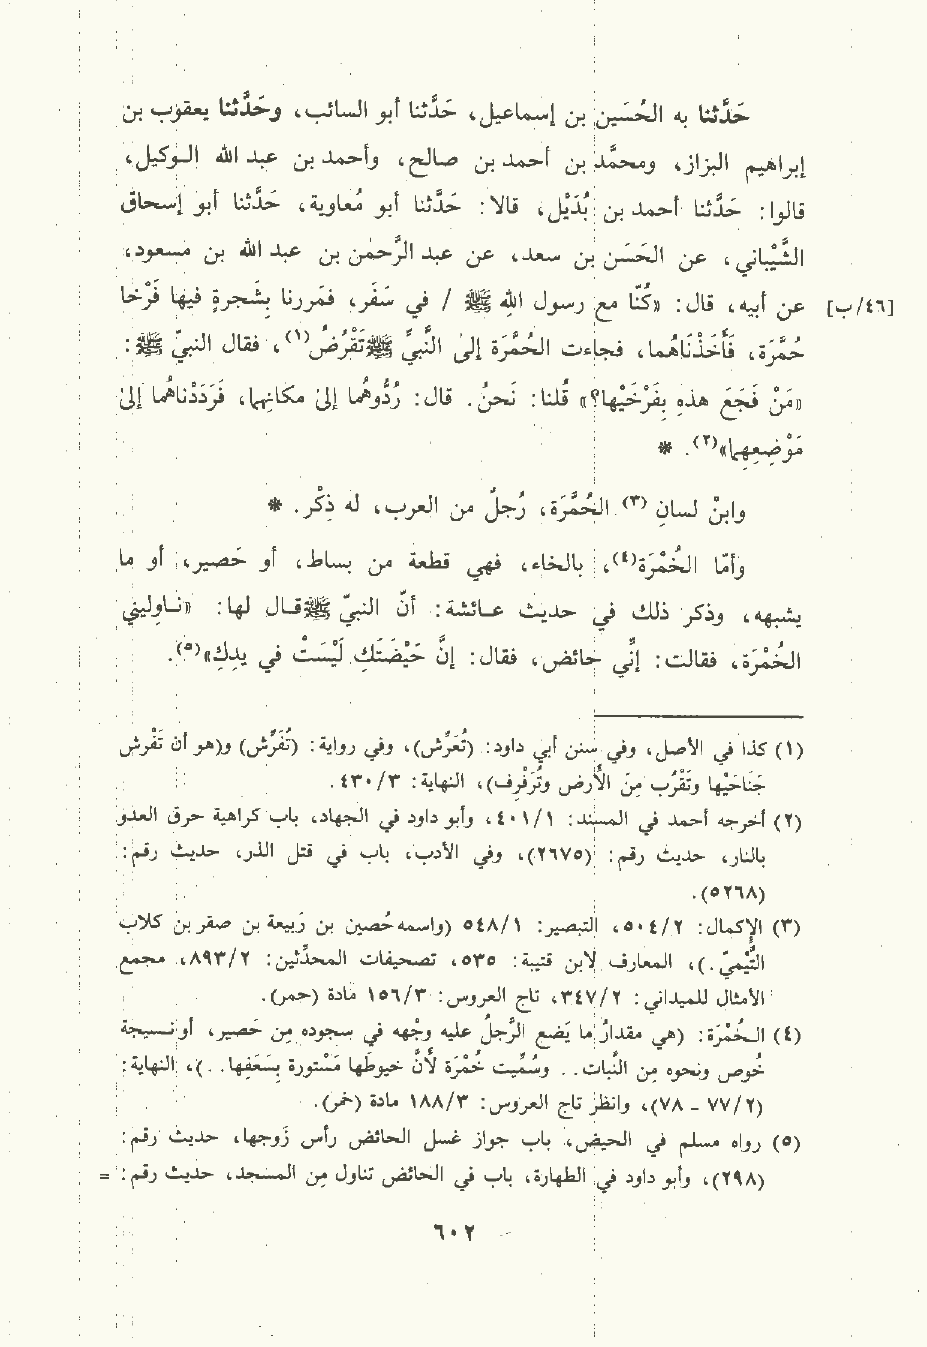 حَدَّثنا به الحُسَين بن إسماعيل، حَدَّثنا أبو السائب، وحَدَّثنا يعقوب بن
إبراهيم البزاز، ومحمَّد بن أحمد بن صالح، وأحمد بن عبد الله الوكيل،
قالوا: حَدَّثنا أحمد بن بُدَيْل، قالا: حَدَّثنا أبو مُعاوية، حَدَّثنا أبو إسحاق
الشَّيْباني، عن الحَسَن بن سعد، عن عبد الرَّحمٰن بن عبد الله بن مسعود،
[٤٦/ب] عن أبيه، قال: «كُنَّا مع رسول الله ﷺ / في سَفَر، فمَررنا بِشَجرةٍ فيها فَرْخا
حُمَّرَة، فَأَخَذْنَاهُما، فجاءت الحُمَّرَة إلى النَّبيِّ ﷺ تَقْرُضُ(١)، فقال النبيّ ﷺ:
«مَنْ فَجَعَ هذه بِفَرْخَيْها؟» قُلنا: نَحنُ. قال: رُدُّوهُما إلى مكانِهما، فَرَدَدْناهُما إلى
مَوْضِعِهما»(٢). *
وابنُ لسانِ(٣) الحُمَّرَة، رُجلٌ من العرب، له ذِكْر. *
وأمّا الخُمْرَة(٤)، بالخاء، فهي قطعة من بساط، أو حَصير، أو ما
يشبهه، وذكر ذلك في حديث عـائشة: أنّ النبيّ ﷺ قـال لها: «نـاوِليني
الخُمْرَة، فقالت: إنّي حائض، فقال: إنّ حَيْضَتَكِ لَيْسَتْ في يدِكِ»(٥).
(١) كذا في الأصل، وفي سنن أبي داود: (تُعَرِّش)، وفي رواية: (تُفَرِّش) و(هو أن تَفْرش
جَنَاحَيْها وتَقْرُب مِنَ الأَرض وتُرَفْرِف)، النهاية: ٤٣٠/٣.
(٢) أخرجه أحمد في المسند: ٤٠١/١، وأبو داود في الجهاد، باب كراهية حرق العدو
بالنار، حديث رقم: (٢٦٧٥)، وفي الأدب، باب في قتل الذر، حديث رقم:
(٥٢٦٨).
(٣) الإكمال: ٥٠٤/٢، التبصير: ٥٤٨/١ (واسمه حُصين بن رَبيعة بن صقر بن كلاب
التَّيْميّ.)، المعارف لابن قتيبة: ٥٣٥، تصحيفات المحدِّثين: ٨٩٣/٢، مجمع
الأمثال للميداني: ٣٤٧/٢، تاج العروس: ١٥٦/٣ مادة (حمر).
(٤) الـخُمْرَة: (هي مقدارُ ما يَضع الرَّجلُ عليه وجْهه في سجوده مِن حَصير، أو نـسيجة
خُوص ونحوه مِن النَّبات.. وسُمِّيت خُمْرَة لأنَّ خيوطَها مَسْتورة بِسَعَفِها..)، النهاية:
(٧٧/٢ - ٧٨)، وانظر تاج العروس: ١٨٨/٣ مادة (خمر).
(٥) رواه مسلم في الحيض، باب جواز غسل الحائض رأس زَوجها، حديث رقم:
(٢٩٨)، وأبو داود في الطهارة، باب في الحائض تناول مِن المسجد، حديث رقم: =
٦٠٢